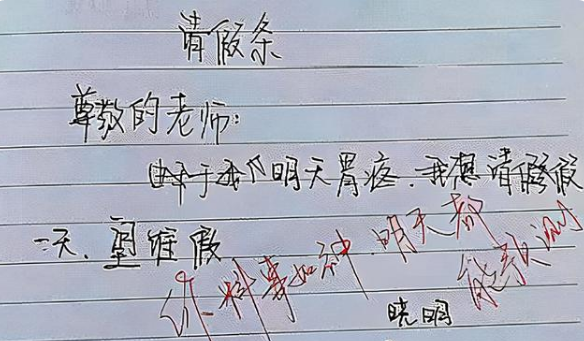 请假条
尊敬的老师:
由于我明天胃疼.我想请假
一天、望准假
料事如神.明天都
能预测
晓明